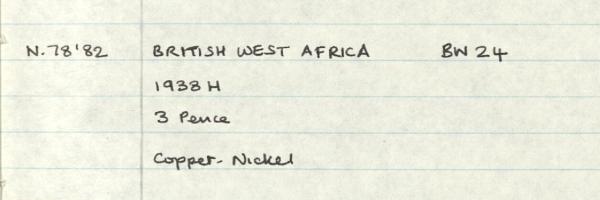 N.78'82 BRITISH WEST AFRICA BW 24
1938 H
3 Pence
Copper-Nickel